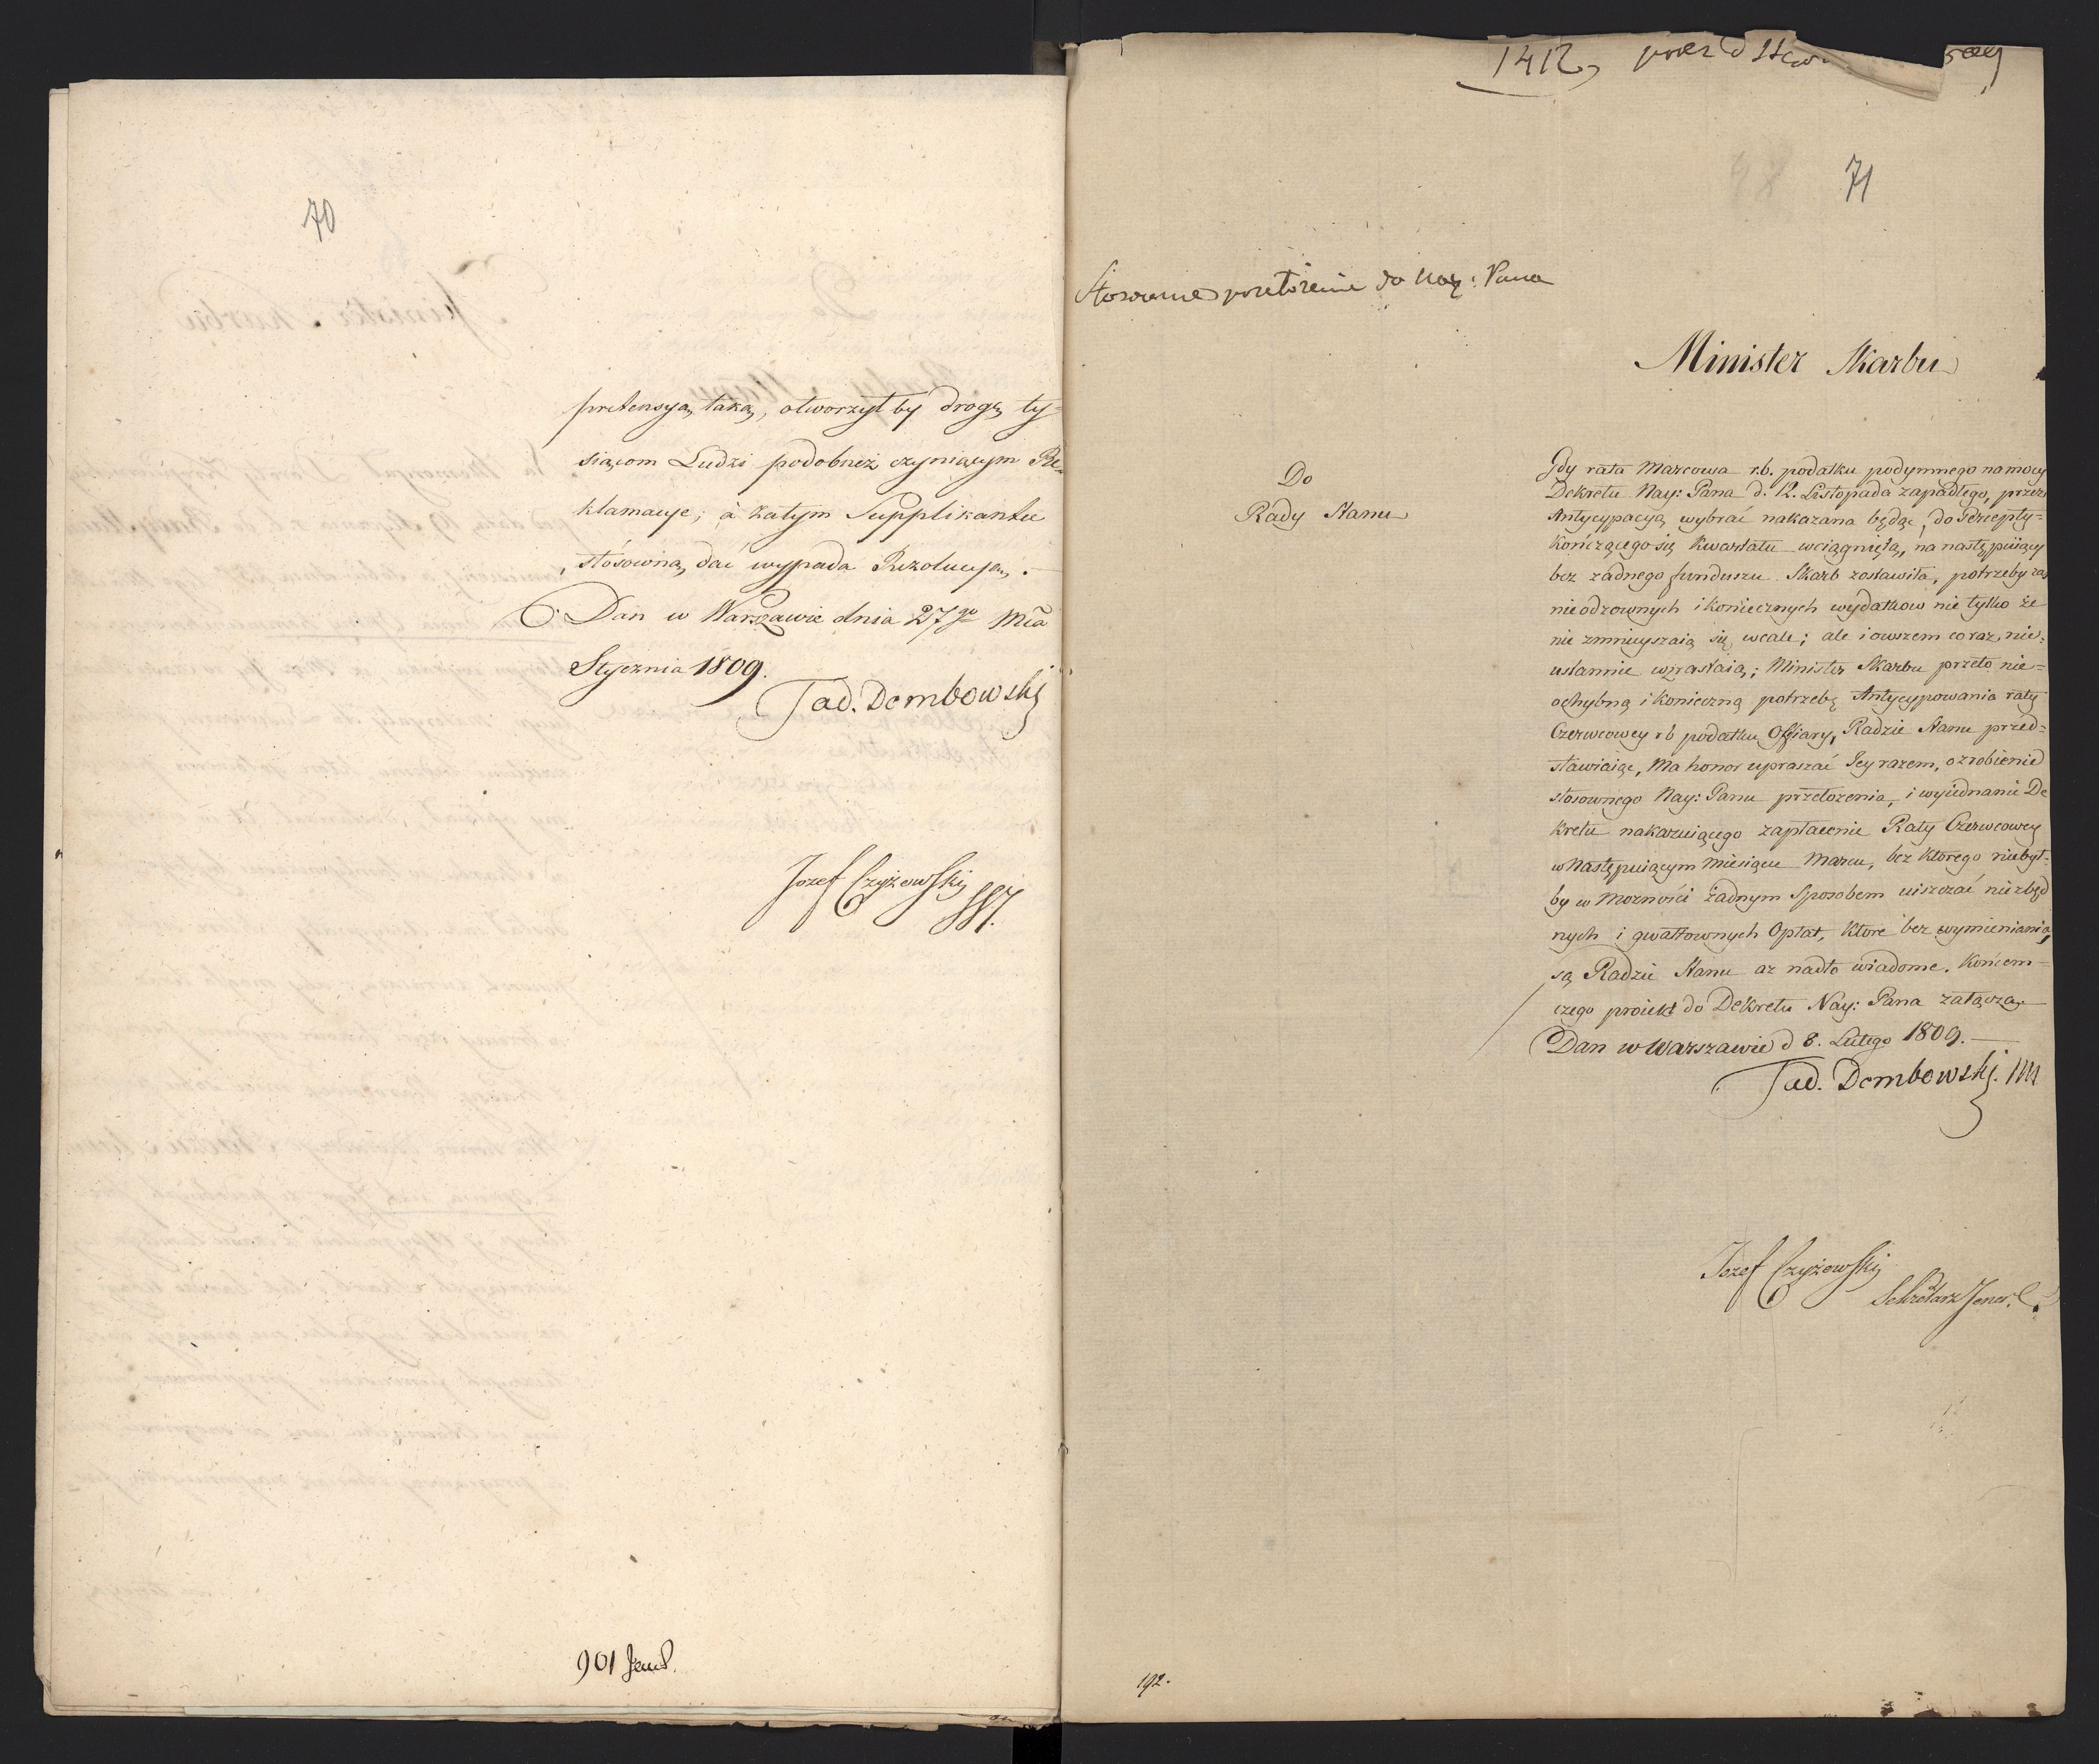 70
pretensyą taką, otworzył by drogę ty=
siącom Ludzi podobnież czyniącym Re=
klamacye; à zatym Supplikantce
stósowną dać wypada Rezolucyą. –
Dan w Warszawie dnia 27go Mca
Stycznia 1809.
Tad. Dembowski
Jozef Czyżewski
901
1412
71
Stosowne przełożenie do Nay: Pana
Minister Skarbu
Do
Rady Stanu
Gdy rata Marcowa r.b. podatku podymnego na mocy
Dekretu Nay: Pana d. 12. Listopada zapadłego, przez
Antycypacyą wybrać nakazana będąc, do Percepty=
kończącego się Kwartału wciągnięta, na następuiący
bez żadnego funduszu Skarb zostawiła, potrzeby zaś
nieodzownych i koniecznych wydatkow nie tylko że
nie zmnieyszaią się wcale; ale i owszem coraz nie=
ustannie wzrastaią; Minister Skarbu przeto nie=
ochybną i konieczną potrzebę Antycypowania raty
Czerwcowey r b podatku Offiary, Radzie Stanu przed=
stawiaiąc, Ma honor upraszać Jey razem, o zrobienie
stosownego Nay: Panu przełożenia, i wyiednanie De
kretu nakazuiącego zapłacenie Raty Czerwcowey
w Następuiącym Miesiącu Marcu, bez którego niebył=
by w Możności żadnym Sposobem uiszczać niezbęd
nych i gwałtownych Opłat, które bez wymieniania,
są Radzie Stanu aż nadto wiadome. Końcem=
czego proiekt do Dekretu Nay: Pana załącza. –
Dan w Warszawie d 8. Lutego 1809. –
Tad. Dembowski.
Jozef Czyżewski
Sekretarz Jener.
192.